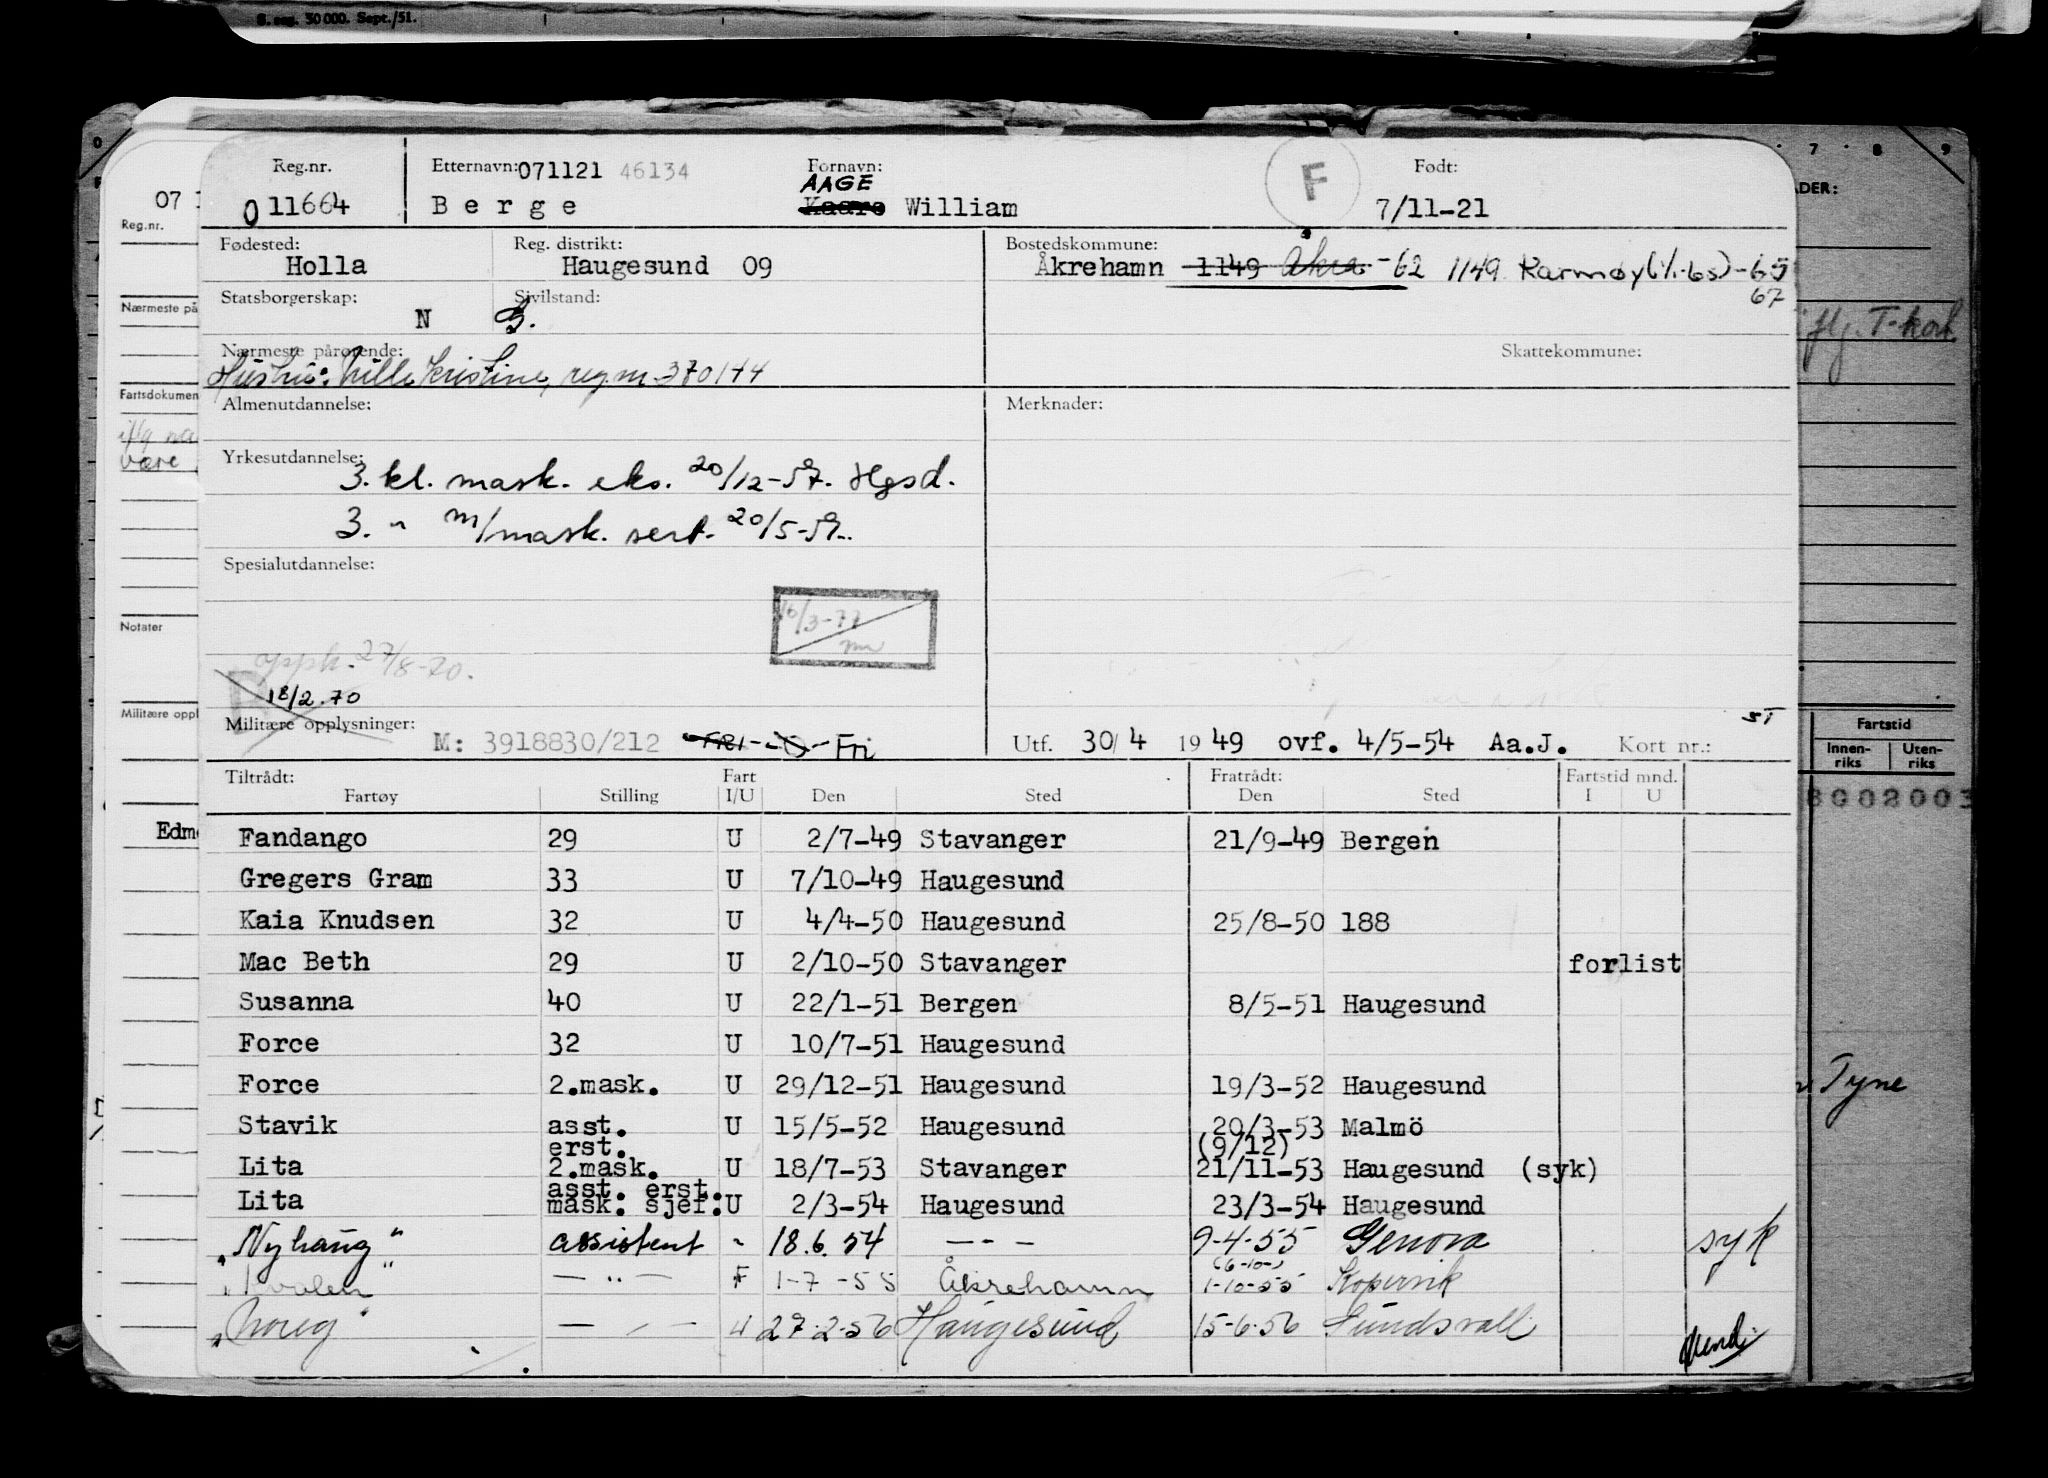 S. seg. 30 000. Sept./51.
Reg.nr. Etternavn: 071121 46134 Fornavn: F Født:
AAGE
011664 Berge Kaare William 7/11-21
Fødested: Reg. distrikt: Bostedskommune:
Holla Haugesund 09 Åkrehamn 1149 Åkra -62 1149 Karmøy (1/1-65) -65
67
Statsborgerskap: Sivilstand:
N G.
Nærmeste pårørende: Skattekommune:
Hustru: Kristine, reg nr 370144
Almenutdannelse: Merknader:
Yrkesutdannelse:
3. kl. mask. eks. 20/12-57. Hgsd.
3. " m/mask. sert. 20/5-59.
Spesialutdannelse:
16/3-77
opph. 27/8-70.
18/2.70
Militære opplysninger:
M: 3918830/212 FRI Fri Utf. 30/4 1949 ovf. 4/5-54 Aa.J. Kort nr.:
ST
Tiltrådt: Fart Fratrådt: Fartstid mnd.
Fartøy Stilling I/U Den Sted Den Sted I U
Fandango 29 U 2/7-49 Stavanger 21/9-49 Bergen
Gregers Gram 33 U 7/10-49 Haugesund
Kaia Knudsen 32 U 4/4-50 Haugesund 25/8-50 188
Mac Beth 29 U 2/10-50 Stavanger forlist
Susanna 40 U 22/1-51 Bergen 8/5-51 Haugesund
Force 32 U 10/7-51 Haugesund
Force 2.mask. U 29/12-51 Haugesund 19/3-52 Haugesund
Stavik asst. U 15/5-52 Haugesund 20/3-53 Malmö
erst. (9/12)
Lita 2.mask. U 18/7-53 Stavanger 21/11-53 Haugesund (syk)
asst. erst.
Lita mask. sjef. U 2/3-54 Haugesund 23/3-54 Haugesund
"Nyhaug" assistent " 18.6.54 — " — 9-4-55 Genova syk
(6-10-)
"Kvalen" — " — F 1-7-55 Åkrehamn 1-10-55 Kopervik
"Noreg" — " — U 27-2-56 Haugesund 15-6-56 Sundsvall
vend.
07
Reg.nr.
Nærmeste på
Fartsdokumen
være
Notater
Militære oppl
Edm
7 8 9
ADER:
iflg. T-kort
Fartstid
Innen-riks Uten-riks
8002003
Tyne